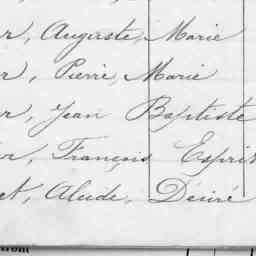 r, Auguste, Marie
r, Pierre, Marie
r, Jean Baptiste
r, François Esprit
et, Alude, Désiré